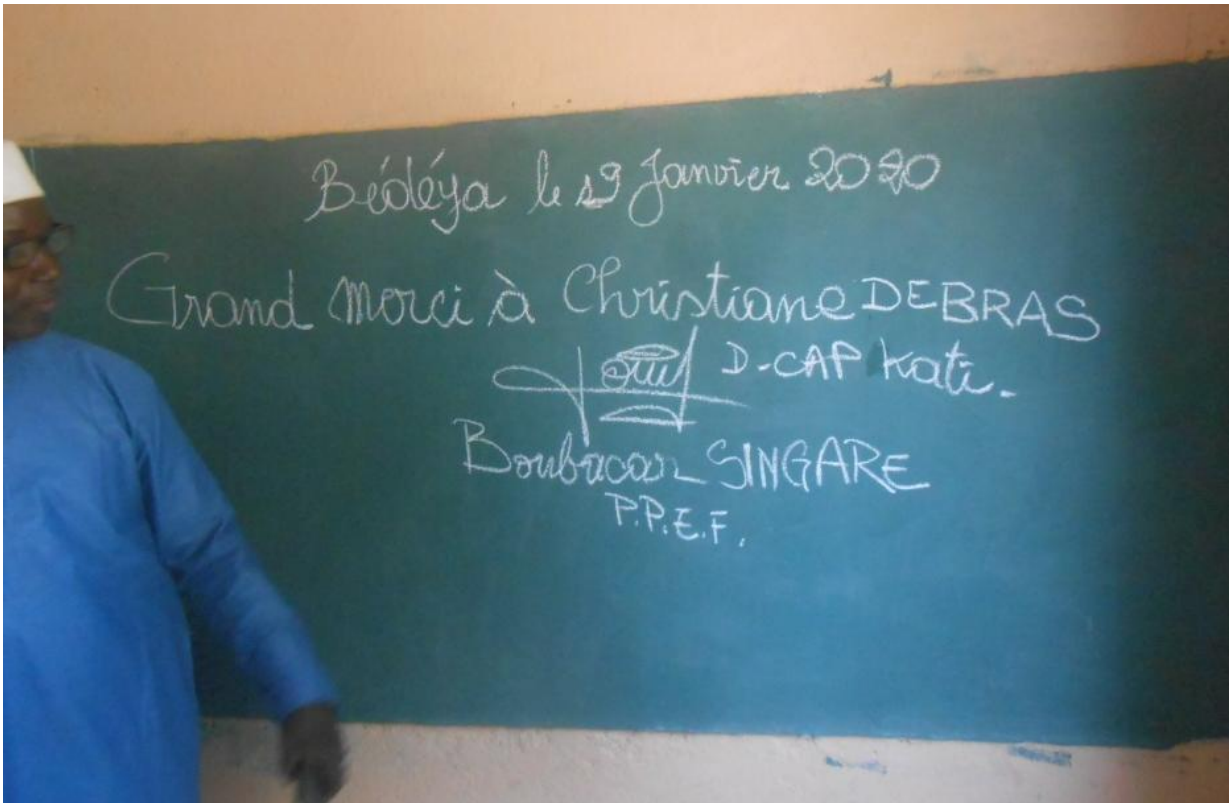 Bédéya le 19 Janvier 2020
Grand Merci à Christiane DEBRAS
D-CAP Kati.
Boubacar SINGARE
P.P.E.F.